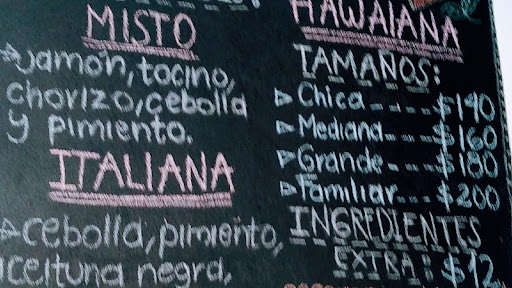 MISTO
Jamón, tocino,
chorizo, cebolla
y pimiento.
ITALIANA
cebolla, pimiento,
aceituna negra,
HAWAIANA
TAMAÑOS:
Chica $140
Mediana $160
Grande $180
Familiar $200
INGREDIENTES
EXTRA: $12